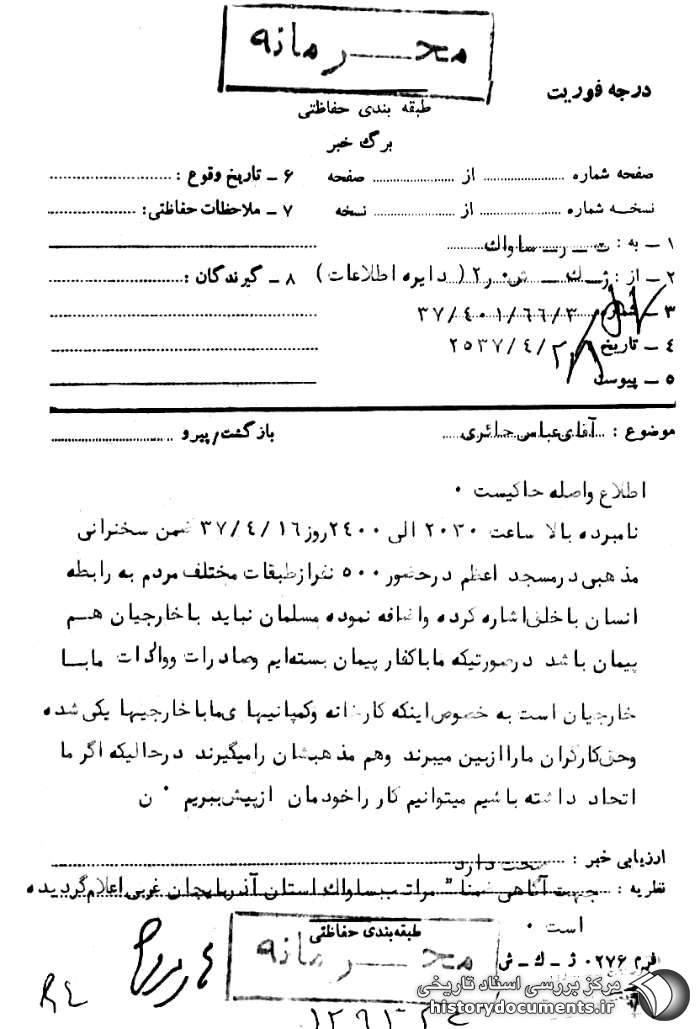 محرمانه
درجه فوریت
طبقه بندی حفاظتی
برگ خبر
صفحه شماره ............ از ............ صفحه
۶ ـ تاریخ وقوع :
نسخه شماره ............ از ............ نسخه
۷ ـ ملاحظات حفاظتی:
۱ ـ به : ت ـ ر ـ ساواک
۲ ـ از : ژ ـ ک ـ ش ۰ ر۲ ( دایره اطلاعات )
۸ ـ گیرندگان :
۳ ـ شماره ۳۷/۴۰۱/۶۶/۳
۴ ـ تاریخ ۲۵۳۷/۴/۲۸
۵ ـ پیوست
موضوع : آقای عباس حائری
بازگشت/پیرو
اطلاع واصله حاکیست ۰
نامبرده بالا ساعت ۲۰۳۰ الی ۲۴۰۰ روز ۳۷/۴/۱۶ ضمن سخنرانی
مذهبی در مسجد اعظم در حضور ۵۰۰ نفر از طبقات مختلف مردم به رابطه
انسان با خلق اشاره کرده و اضافه نموده مسلمان نباید با خارجیان هم
پیمان باشد در صورتیکه ما با کفار پیمان بسته‌ایم و صادرات و واردات ما با
خارجیان است به خصوص اینکه کارخانه و کمپانیهای ما با خارجیها یکی شده
و حق کارگران ما را از بین میبرند و هم مذهبشان را میگیرند در حالیکه اگر ما
اتحاد داشته باشیم میتوانیم کار را خودمان از پیش ببریم ۰ ن
ارزیابی خبر : صحت دارد
نظریه : جهت آگاهی ضمنا" مراتب بساواک استان آذربایجان غربی اعلام گردیده
است ۰
طبقه بندی حفاظتی
محرمانه
فرم ۰۲۷۶ ژ ـ ک ـ ش
مرکز بررسی اسناد تاریخی
historydocuments.ir